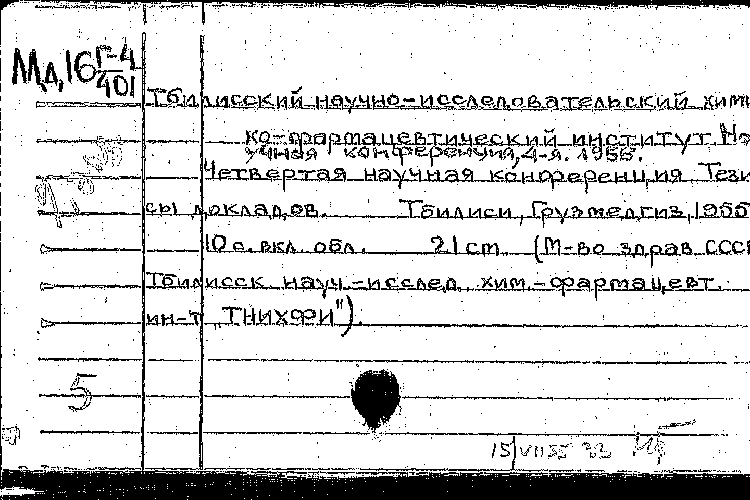 Мд,16 Г-4
401
Тбилисский научно-исследовательский хими
ко-фармацевтический институт. На
учная конференция, 4-я. 1955.
Четвертая научная конференция. Тези
сы докладов. Тбилиси, Грузмедгиз, 1955
10 с. вкл. обл. 21 cm (М-во здрав. СССР
Тбилисск науч.-исслед. хим.-фармацевт.
ин-т „ТНИХФИ").
5
15/VII 55